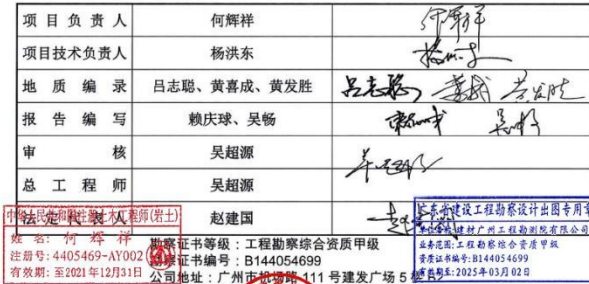 项目负责人 何辉祥
项目技术负责人 杨洪东
地质编录 吕志聪、黄喜成、黄发胜
报告编写 赖庆球、吴畅
审核 吴超源
总工程师 吴超源
法定代表人 赵建国
姓名：何辉祥
注册号：4405469-AY002
有效期：至2021年12月31日
勘察证书等级：工程勘察综合资质甲级
勘察证书编号：B144054699
公司地址：广州市机场路 111 号建发广场 5 楼
广东省建设工程勘察设计出图专用章
建材广州工程勘测院有限公司
业务范围：工程勘察综合资质甲级
资质证书编号：B144054699
有效期至：2025年03月02日